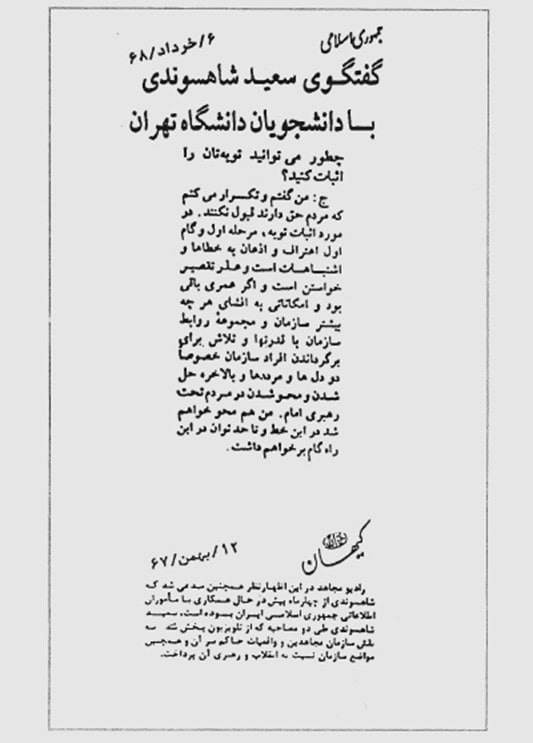 جمهوری اسلامی
۶/خرداد/۶۸
گفتگوی سعید شاهسوندی
با دانشجویان دانشگاه تهران
چطور می توانید توبه‌تان را
اثبات کنید؟
ج: من گفتم و تکرار می کنم
که مردم حق دارند قبول نکنند. در
مورد اثبات توبه، مرحله اول و گام
اول اعتراف و اذعان به خطاها و
اشتباهات است و عذر تقصیر
خواستن است و اگر عمری باقی
بود و امکاناتی به افشای هر چه
بیشتر سازمان و مجموعهٔ روابط
سازمان با قدرتها و تلاش برای
برگرداندن افراد سازمان خصوصاً
دو دل ها و مرددها و بالاخره حل
شدن و محو شدن در مردم تحت
رهبری امام. من هم محو خواهم
شد در این خط و تا حد توان در این
راه گام برخواهم داشت.
کیهان
۱۲/بهمن/۶۷
رادیو مجاهد در این اظهارنظر همچنین مدعی شد که
شاهسوندی از چهارماه پیش در حال همکاری با مأموران
اطلاعاتی جمهوری اسلامی ایران بوده است. سعید
شاهسوندی طی دو مصاحبه که از تلویزیون پخش شد به
نقش سازمان مجاهدین و واقعیات حاکم بر آن و همچنین
مواضع سازمان نسبت به انقلاب و رهبری آن پرداخت.